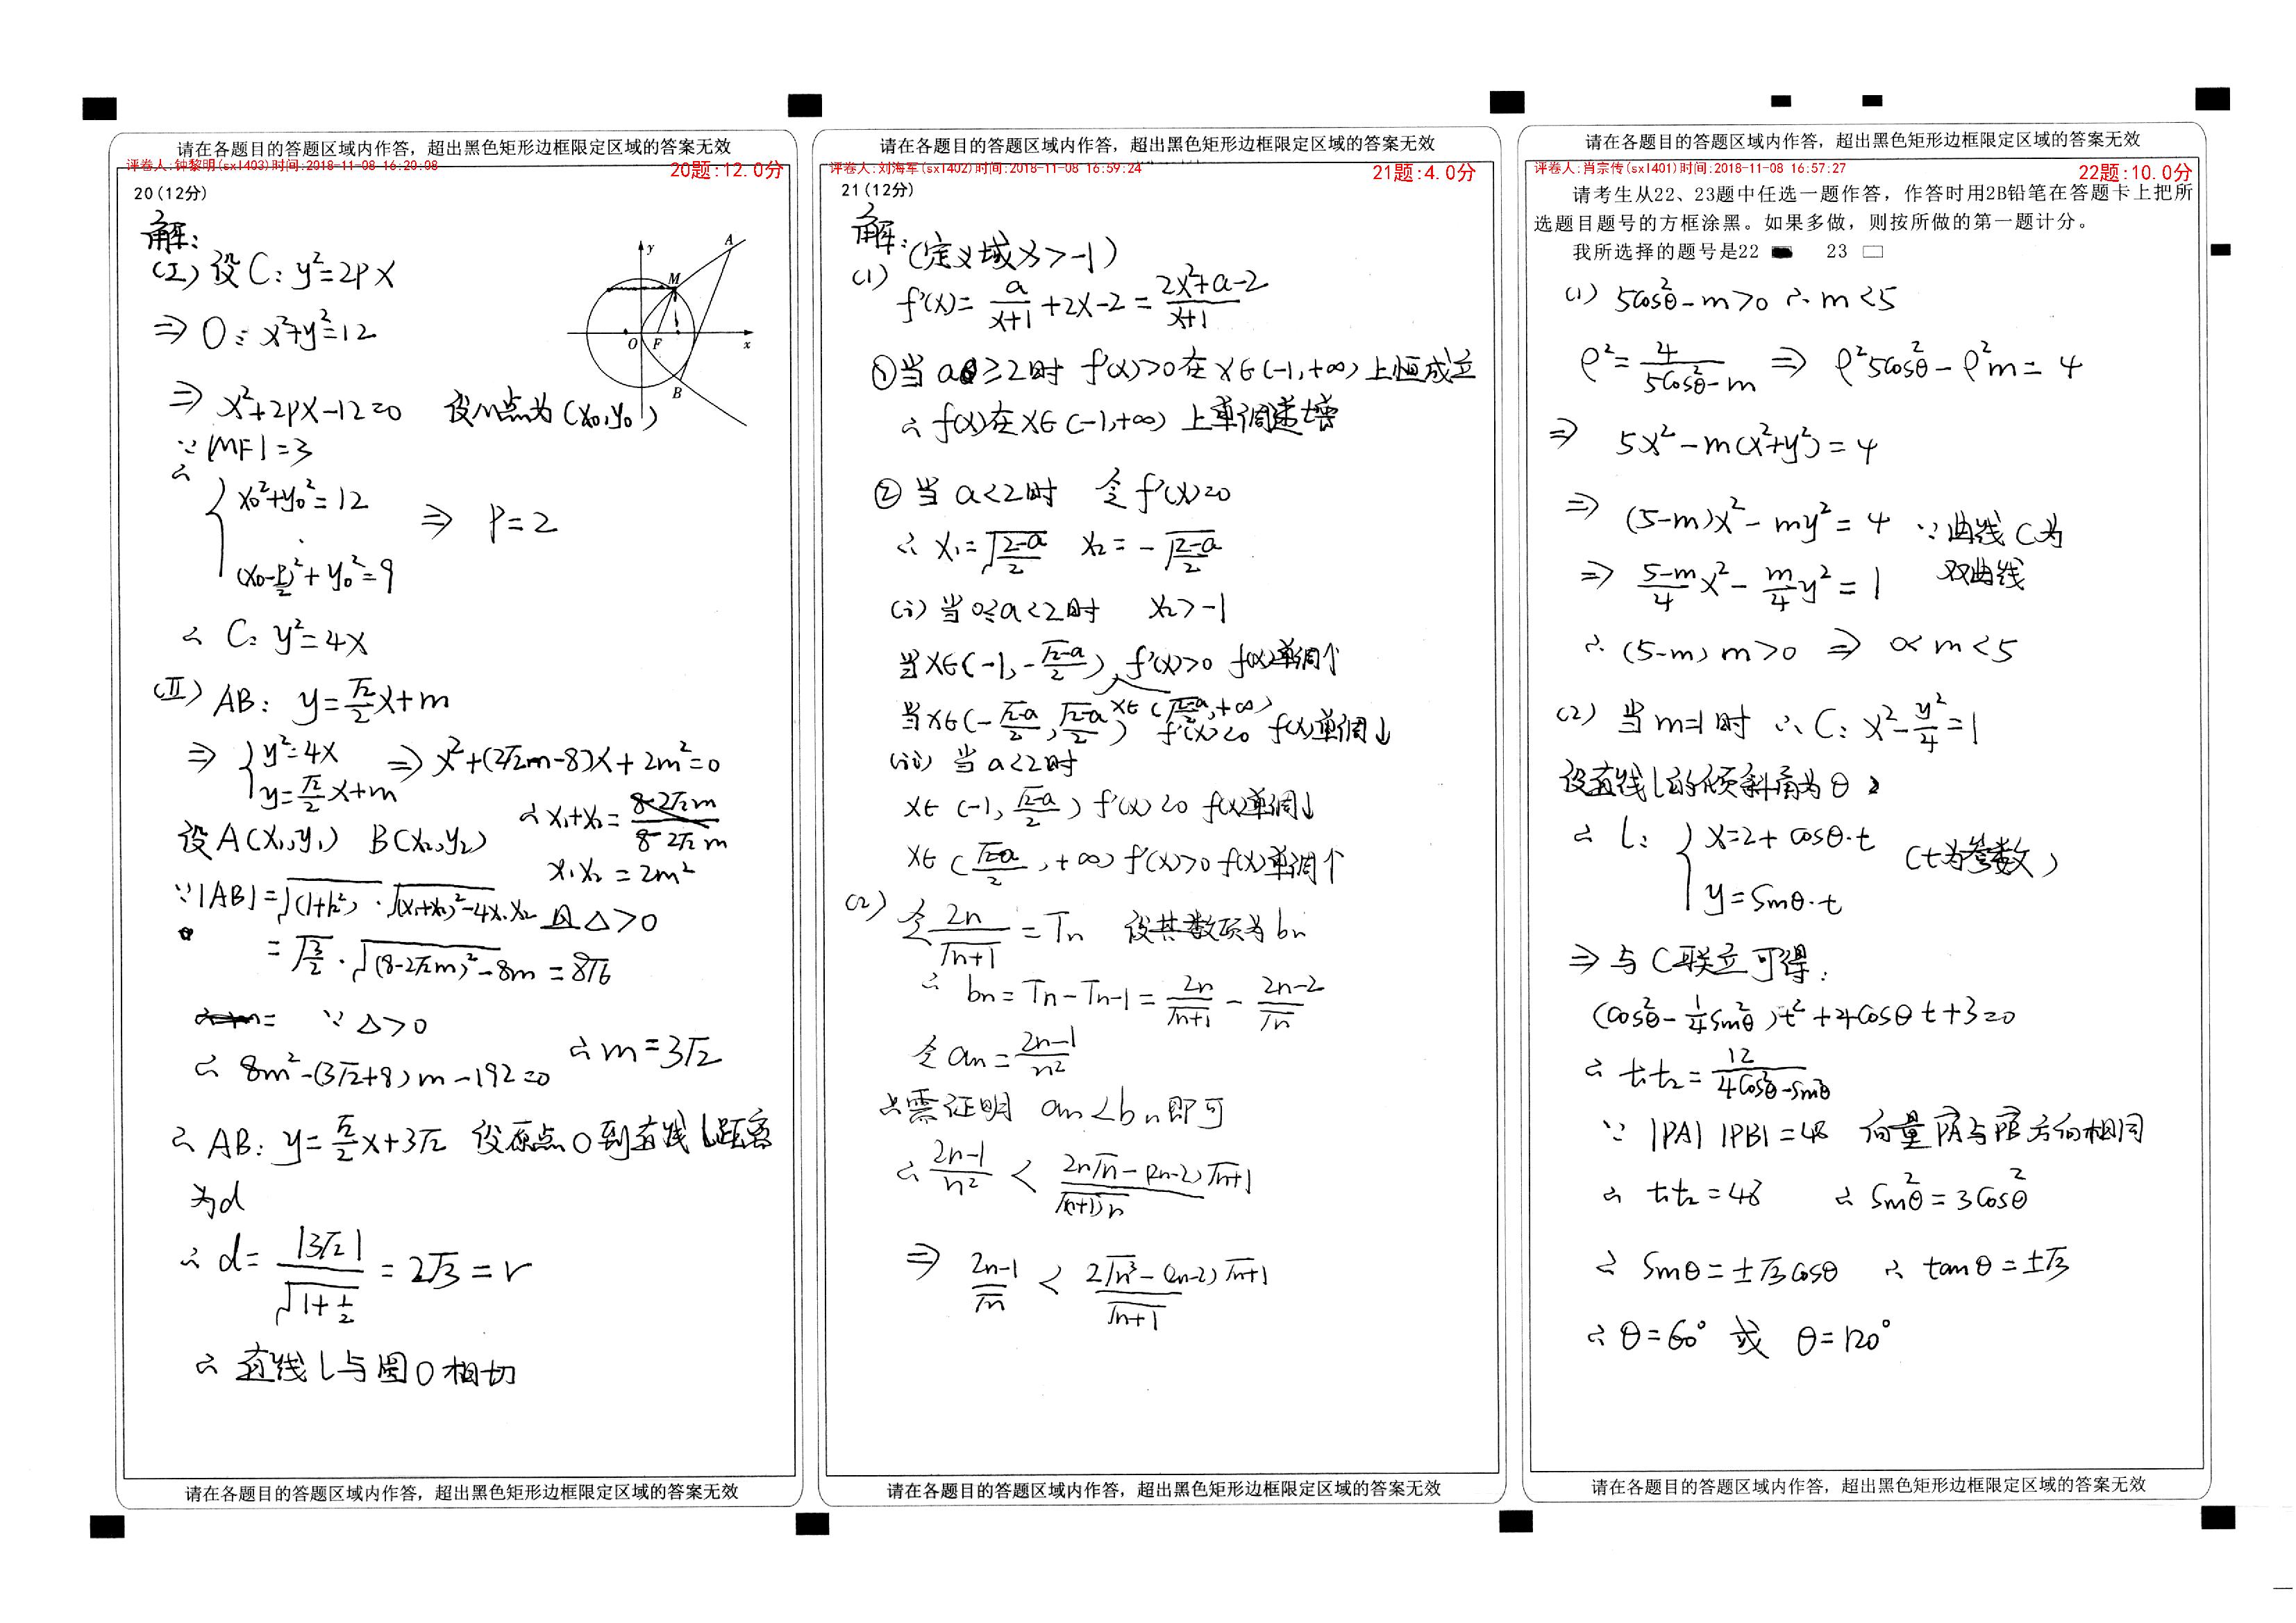 请在各题目的答题区域内作答，超出黑色矩形边框限定区域的答案无效
评卷人:钟黎明(sxl403)时间:2018-11-08 16:20:08
20题:12.0分
20(12分)
解:
(I) 设C: y²=2px
⇒ O: x²+y²=12
⇒ x²+2px-12=0 设M点为(x₀,y₀)
∵|MF|=3
∴ { x₀²+y₀²=12
(x₀-p/2)²+y₀²=9 ⇒ p=2
∴ C: y²=4x
(II) AB: y=√2/2x+m
⇒ { y²=4x
y=√2/2x+m ⇒ x²+(2√2m-8)x+2m²=0
设A(x₁,y₁) B(x₂,y₂) ∴x₁+x₂=8-2√2m
x₁x₂=2m²
∵|AB|=√(1+k²)·√(x₁+x₂)²-4x₁x₂ 且△>0
=√3/2·√(8-2√2m)²-8m=8√6
∵△>0
∴ 8m²-(3√2+8)m-192=0 ∴m=3√2
∴ AB: y=√2/2x+3√2 设原点O到直线l距离
为d
∴ d=|3√2|/√1+1/2=2√3=r
∴ 直线l与圆O相切
y
A
M
O
F
x
B
请在各题目的答题区域内作答，超出黑色矩形边框限定区域的答案无效
请在各题目的答题区域内作答，超出黑色矩形边框限定区域的答案无效
评卷人:刘海军(sxl402)时间:2018-11-08 16:59:24
21题:4.0分
21(12分)
解:(定义域x>-1)
(1) f'(x)=a/x+1+2x-2=2x²+a-2/x+1
①当a≥2时 f'(x)>0在x∈(-1,+∞)上恒成立
∴f(x)在x∈(-1,+∞)上单调递增
②当a<2时 令f'(x)=0
∴ x₁=√2-a/2 x₂=-√2-a/2
(i) 当0≤a<2时 x₂>-1
当x∈(-1,-√2-a/2), x∈(√2-a/2,+∞) f'(x)>0 f(x)单调↑
当x∈(-√2-a/2,√2-a/2) f'(x)<0 f(x)单调↓
(ii) 当a<2时
x∈(-1,√2-a/2) f'(x)<0 f(x)单调↓
x∈(√2-a/2,+∞) f'(x)>0 f(x)单调↑
(2) 令2n/√n+1=Tn 设其数项为bn
∴ bn=Tn-Tn-1=2n/√n+1-2n-2/√n
令an=2n-1/n²
只需证明 an<bn即可
∴2n-1/n²<2n√n-(2n-2)√n+1/√(n+1)n
⇒ 2n-1/√n<2√n³-(2n-2)√n+1/√n+1
请在各题目的答题区域内作答，超出黑色矩形边框限定区域的答案无效
请在各题目的答题区域内作答，超出黑色矩形边框限定区域的答案无效
评卷人:肖宗传(sxl401)时间:2018-11-08 16:57:27
22题:10.0分
请考生从22、23题中任选一题作答，作答时用2B铅笔在答题卡上把所
选题目题号的方框涂黑。如果多做，则按所做的第一题计分。
我所选择的题号是22 23
(1) 5cos²θ-m>0 ∴m<5
ρ²=4/5cos²θ-m ⇒ ρ²5cos²θ-ρ²m=4
⇒ 5x²-m(x²+y²)=4
⇒ (5-m)x²-my²=4 ∵曲线C为
双曲线
⇒ 5-m/4x²-m/4y²=1
∴(5-m)m>0 ⇒ 0<m<5
(2) 当m=1时 ∴C: x²-y²/4=1
设直线l的倾斜角为θ
∴ l: { x=2+cosθ·t
y=sinθ·t (t为参数)
⇒与C联立可得:
(cos²θ-1/4sin²θ)t²+4cosθt+3=0
∴ t₁t₂=12/4cos²θ-sin²θ
∵ |PA||PB|=48 向量PA与PB方向相同
∴ t₁t₂=48 ∴sin²θ=3cos²θ
∴ sinθ=±√3cosθ ∴ tanθ=±√3
∴θ=60° 或 θ=120°
请在各题目的答题区域内作答，超出黑色矩形边框限定区域的答案无效